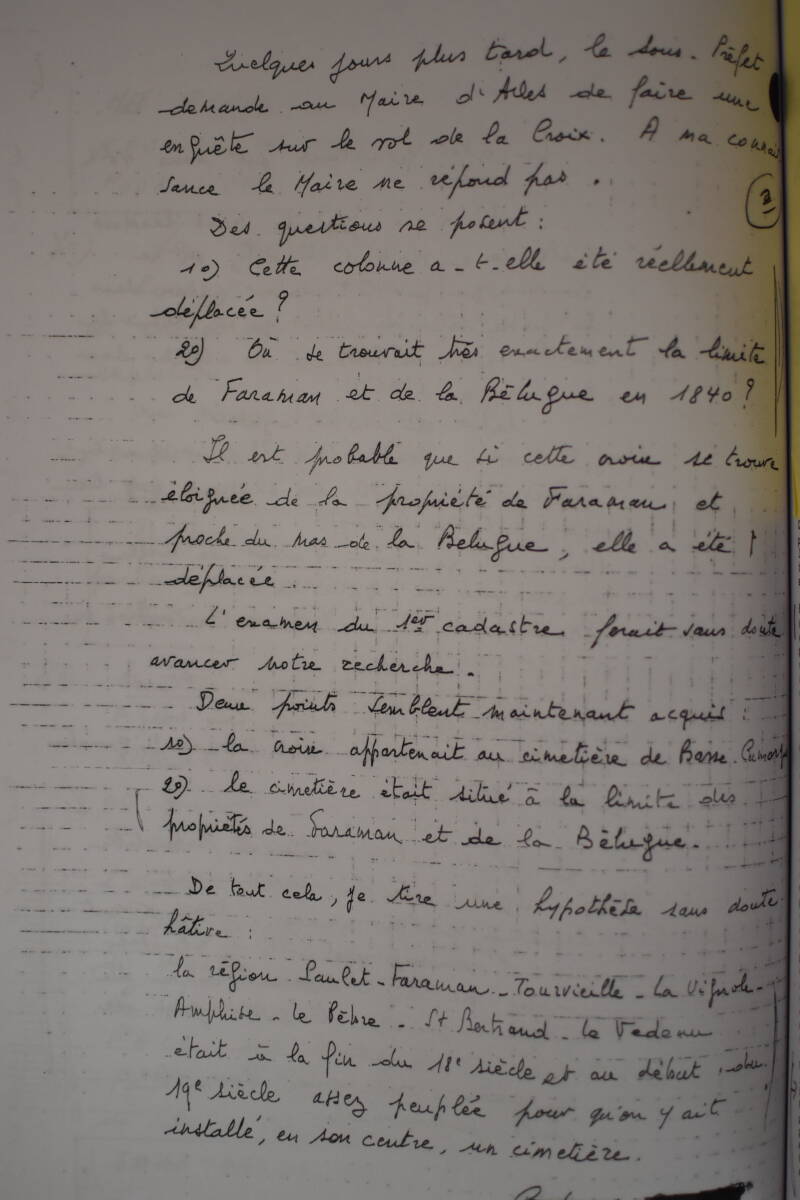 Quelques jours plus tard, le Sous-Préfet
demande au Maire d'Arles de faire une
enquête sur le vol de la Croix. A ma connais
sance le Maire ne répond pas.
2
Des questions se posent :
1o) Cette colonne a-t-elle été réellement
déplacée ?
2o) Où se trouvait très exactement la limite
de Faraman et de la Bélugue en 1840 ?
Il est probable que si cette croix se trouve
éloignée de la propriété de Faraman et
proche du mas de la Belugue, elle a été
déplacée.
L'examen du 1er cadastre ferait sans doute
avancer notre recherche.
Deux points semblent maintenant acquis :
1o) la croix appartenait au cimetière de Basse-Camarg
2o) le cimetière était situé à la limite des
propriétés de Faraman et de la Bélugue.
De tout cela, je tire une hypothèse sans doute
hâtive :
la région Faraman - Tourvieille - La Vignole -
Amphise - le Pèbre - St Bertrand - le Vedeau
était à la fin du 18e siècle et au début du
19e siècle assez peuplée pour qu'on y ait
installé, en son centre, un cimetière.